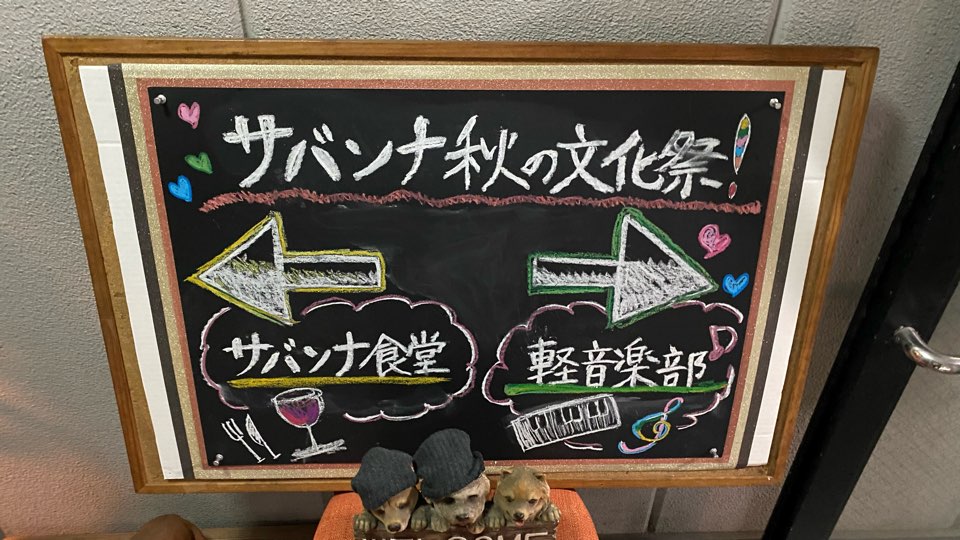 サバンナ秋の文化祭!
サバンナ食堂
軽音楽部
WELCOME